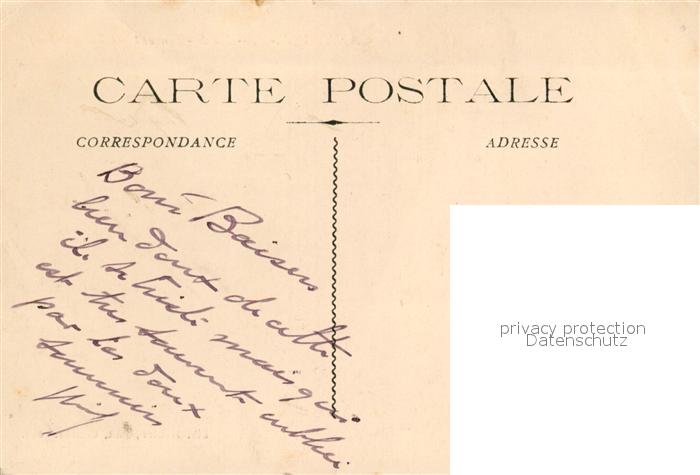 CARTE POSTALE
CORRESPONDANCE
ADRESSE
Bons Baisers
bien doux de cette
île si mais qui
est très souvent oubliée
par les doux
souvenirs
privacy protection
Datenschutz